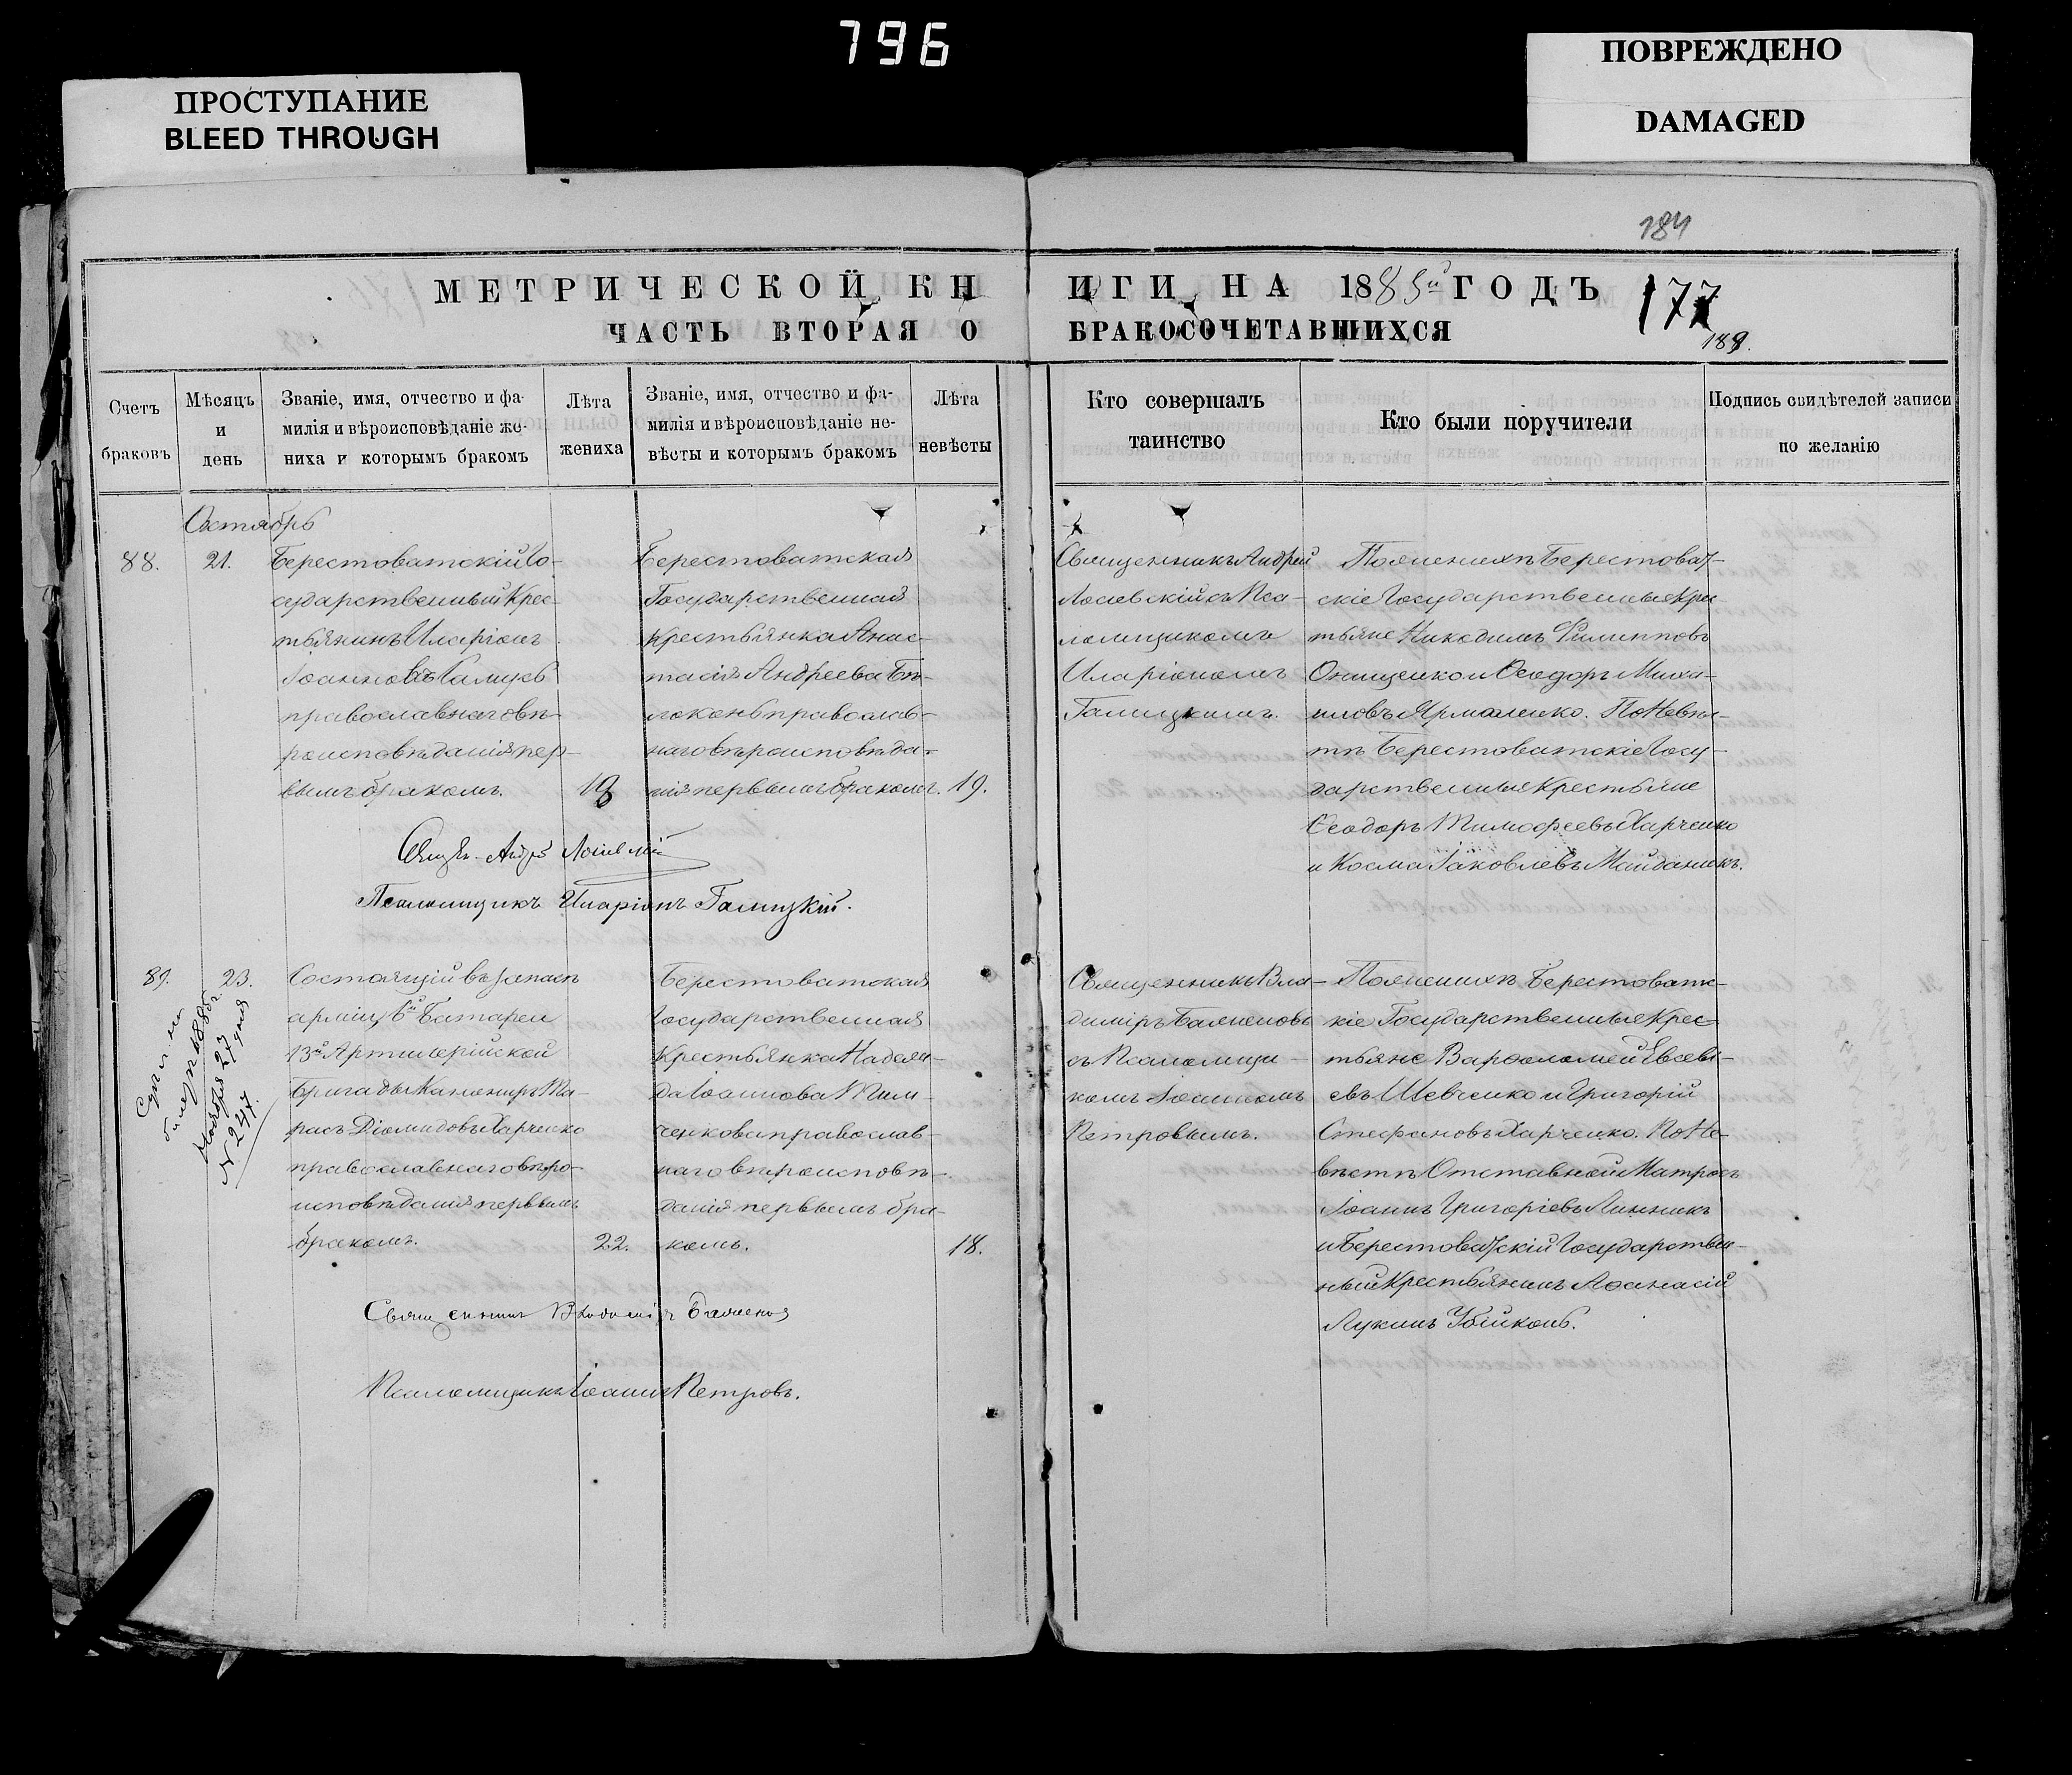 796
ПРОСТУПАНИЕ
BLEED THROUGH
ПОВРЕЖДЕНО
DAMAGED
184
МЕТРИЧЕСКОЙ КН
ИГИ НА 1885й ГОДЪ
177
189.
ЧАСТЬ ВТОРАЯ О
БРАКОСОЧЕТАВШИХСЯ
Счетъ
браковъ
Мѣсяцъ
и
день
Званіе, имя, отчество и фа-
милія и вѣроисповѣданіе же-
ниха и которымъ бракомъ
Лѣта
жениха
Званіе, имя, отчество и фа-
милія и вѣроисповѣданіе не-
вѣсты и которымъ бракомъ
Лѣта
невѣсты
Кто совершалъ
таинство
Кто были поручители
Подпись свидѣтелей записи
по желанію
Октябрь
88.
21.
Берестоватскій Го-
сударственный Крес-
тьянинъ Иларіонъ
Іоанновъ
православнаго вѣ-
роисповѣданія пер-
вымъ бракомъ.
Берестоватская
Государственная
Крестьянка Анас-
тасія Андреева Бѣ-
локонь православ-
наго вѣроисповѣда-
нія первымъ бракомъ.
19.
Священникъ Андрей
съ Пса-
ломщикомъ
Иларіономъ
Галицкимъ.
По женихѣ Берестоват-
скіе Государственные Кре
стьяне Никодимъ Филипповъ
Онищенко и Ѳеодоръ Миха-
иловъ Ярмоленко. По Невѣс-
тѣ Берестоватскіе Госу-
дарственные Крестьяне
Ѳеодоръ Тимофеевъ Харченко
и Косма Іаковлевъ Майданикъ.
Псаломщикъ Иларіонъ Галицкій.
89.
23.
билетъ 1885г.
Ноября 27
№ 247.
Состоящій въ запасѣ
арміи, 6й Батареи
13й Артилерійской
бригады Канониръ Та-
расъ Діомидовъ Харченко
православнаго вѣро-
исповѣданія первымъ
бракомъ.
22.
Берестоватская
Государственная
Крестьянка Надеж-
да Іоаннова Тим-
ченкова православ-
наго вѣроисповѣ-
данія первымъ бра-
комъ.
18.
Священникъ Вла-
диміръ Баженовъ
съ Псаломщи-
комъ Іоанномъ
Петровымъ.
По женихѣ Берестоватс-
кіе Государственные Крес-
тьяне Варфоломей Евсеві-
евъ Шевченко и Григорій
Стефановъ Харченко. По Не-
вѣстѣ Отставной Матросъ
Іоаннъ Григоріевъ Линникъ
и Берестоватскій Государствен-
ный Крестьянинъ Аѳанасій
Лукинъ Убійконь.
Священникъ Владиміръ Баженовъ
Псаломщикъ Іоаннъ Петровъ.